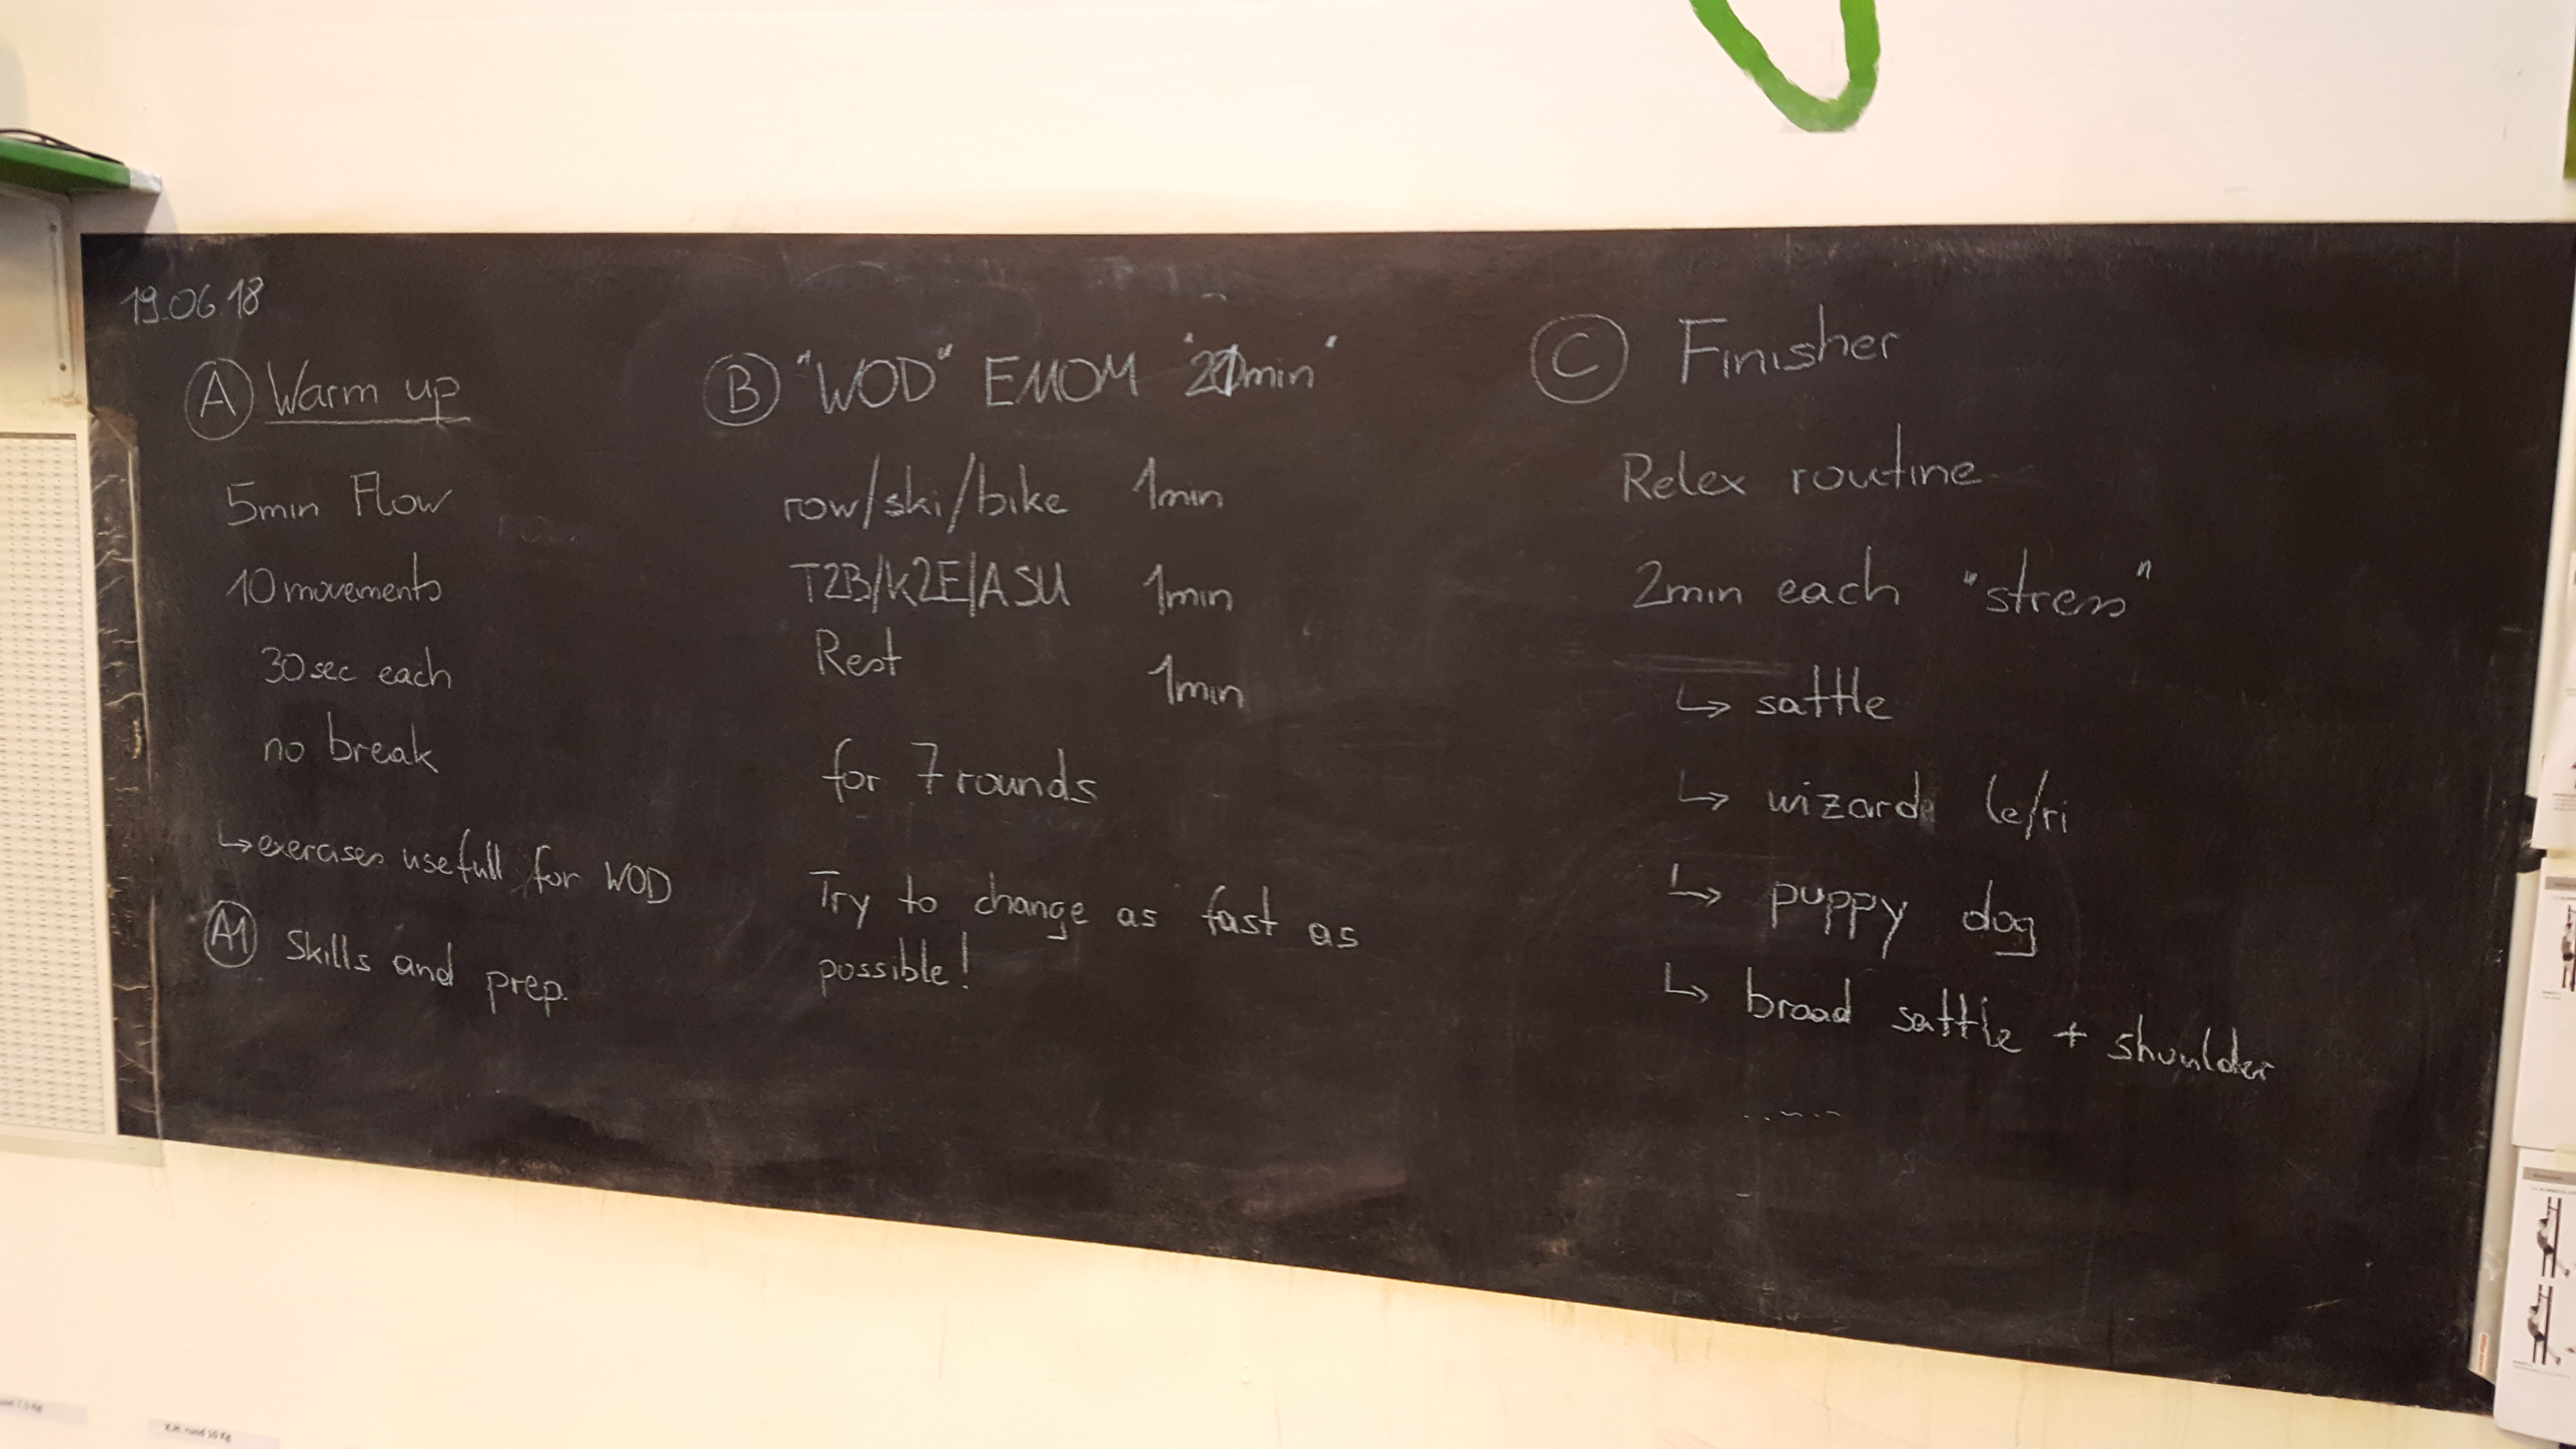 19.06 18
A Warm up
5min Flow
10 movements
30sec each
no break
↳ exercises usefull for WOD
A1 Skills and prep.
B "WOD" EMOM "21min"
row/ski/bike 1min
T2B/K2E/ASU 1min
Rest 1min
for 7 rounds
Try to change as fast as
possible!
C Finisher
Relex routine
2min each "stress"
↳ sattle
↳ wizard le/ri
↳ puppy dog
↳ broad sattle + shoulder
.....
K.H. rund 10 Kg